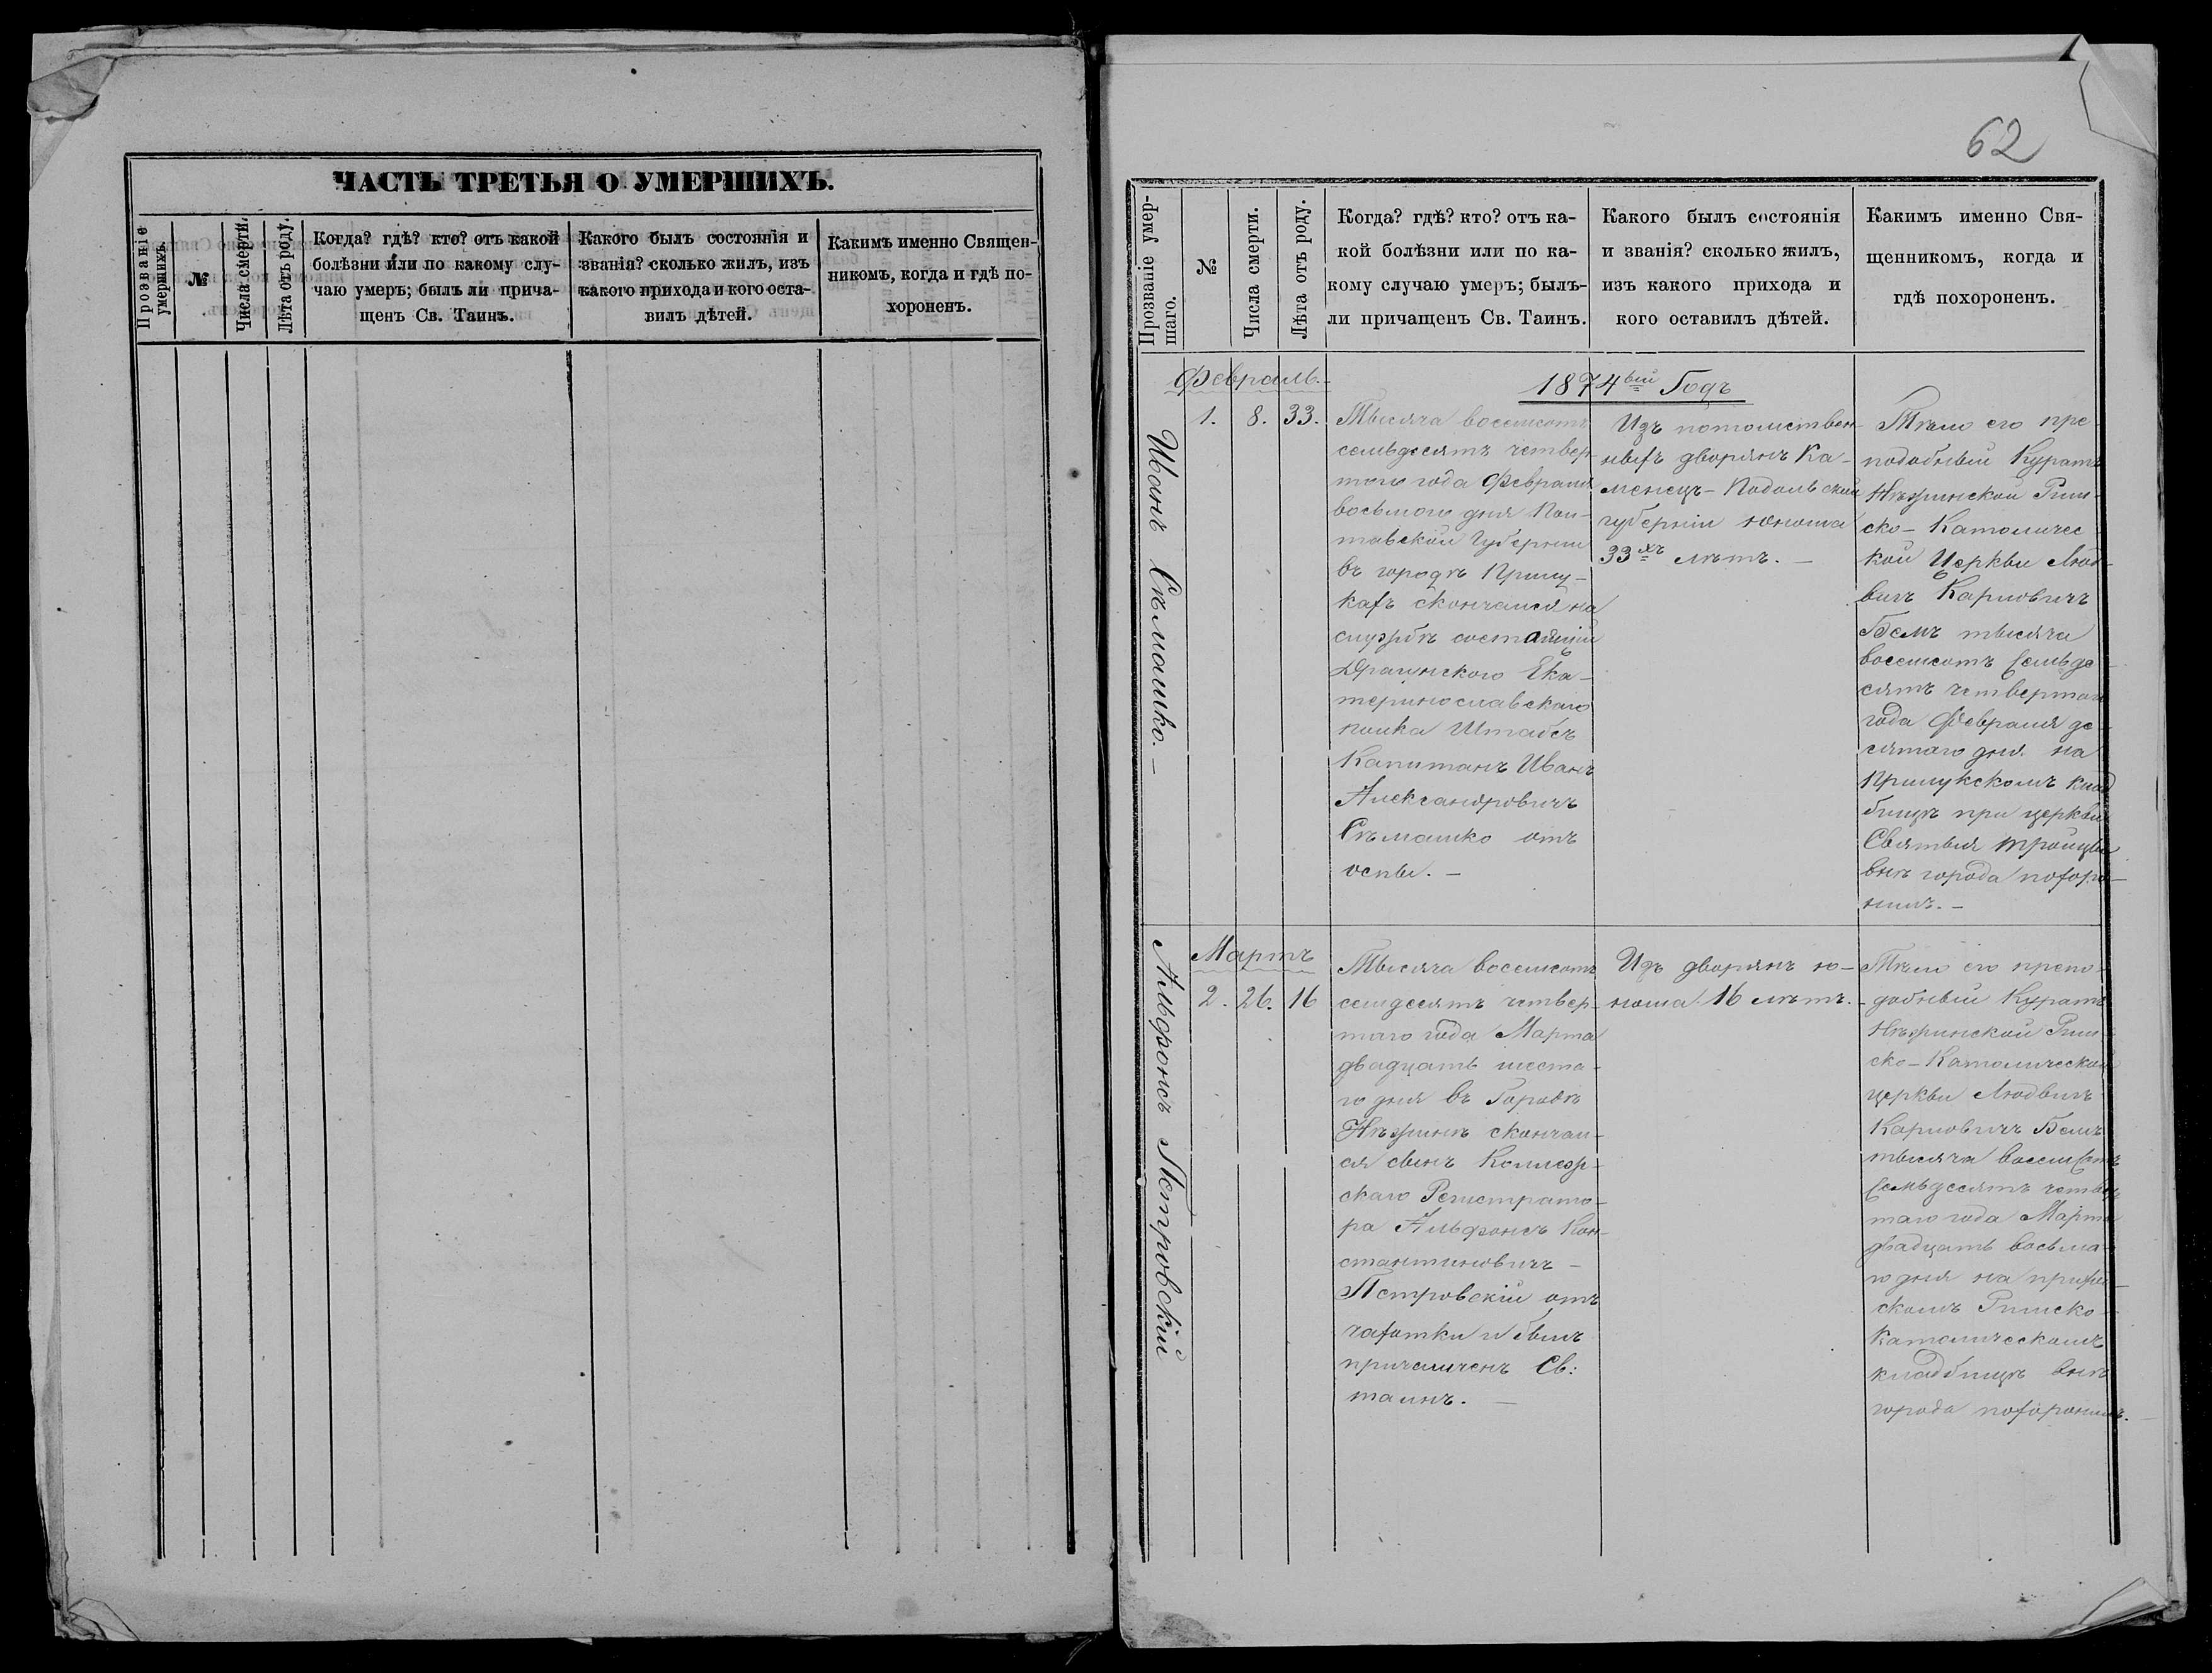 ЧАСТЬ ТРЕТЬЯ О УМЕРШИХЪ.
Прозваніе
умершихъ.
№
Числа смерти.
Лѣта отъ роду.
Когда? гдѣ? кто? отъ какой
болѣзни или по какому слу-
чаю умеръ; былъ ли прича-
щенъ Св. Таинъ.
Какого былъ состоянія и
званія? сколько жилъ, изъ
какого прихода и кого оста-
вилъ дѣтей.
Какимъ именно Священ-
никомъ, когда и гдѣ по-
хороненъ.
62
Прозваніе умер-
шаго.
№
Числа смерти.
Лѣта отъ роду.
Когда? гдѣ? кто? отъ ка-
кой болѣзни или по ка-
кому случаю умеръ; былъ-
ли причащенъ Св. Таинъ.
Какого былъ состоянія
и званія? сколько жилъ,
изъ какого прихода и
кого оставилъ дѣтей.
Какимъ именно Свя-
щенникомъ, когда и
гдѣ похороненъ.
Февраль.
1874ый Годъ
Иванъ Сѣмашко.
1. 8. 33.
Тысяча восемсотъ
семьдесятъ четвер
таго года Февраля
восьмого дня Пол-
тавской Губерніи
въ городѣ Прилу-
кахъ скончался на
службѣ состоящій
Драгунского Ека-
теринославскаго
полка Штабсъ
Капитанъ Иванъ
Александровичъ
Сѣмашко отъ
оспы. –
Изъ потомствен-
ныхъ дворянъ Ка-
менецъ-Подольской
губерніи юноша
33хъ лѣтъ. –
Тѣло его пре
подобный Куратъ
Нѣжинской Рим-
ско-Католичес
кой Церкви Люд-
вигъ Карловичъ
Бемъ тысяча
восемсотъ семьде-
сятъ четвертаго
года Февраля де
сятаго дня на
Прилукскомъ клад
бищѣ при церкви
Святыя Тройцы
внѣ города похоро-
нилъ. –
Мартъ
Альфонсъ Петровскій
2. 26. 16
Тысяча восемсотъ
семдесятъ четвер-
таго года Марта
двадцать шеста-
го дня въ Городѣ
Нѣжинѣ скончал-
ся сынъ Коллеж-
скаго Регистрато-
ра Альфонсъ Кон-
стантиновичъ –
Петровскій отъ
чахотки и былъ
причащенъ Св:
таинъ. –
Изъ дворянъ ю-
ноша 16 лѣтъ.
Тѣло его препо-
добный Куратъ
Нѣжинской Рим
ско-Католической
церкви Людвигъ
Карловичъ Бемъ
тысяча восемсотъ
семьдесятъ четвер
таго года Марта
двадцать восьма-
го дня на
скомъ Римско-
Католическомъ
кладбищѣ внѣ
города похоронилъ. –